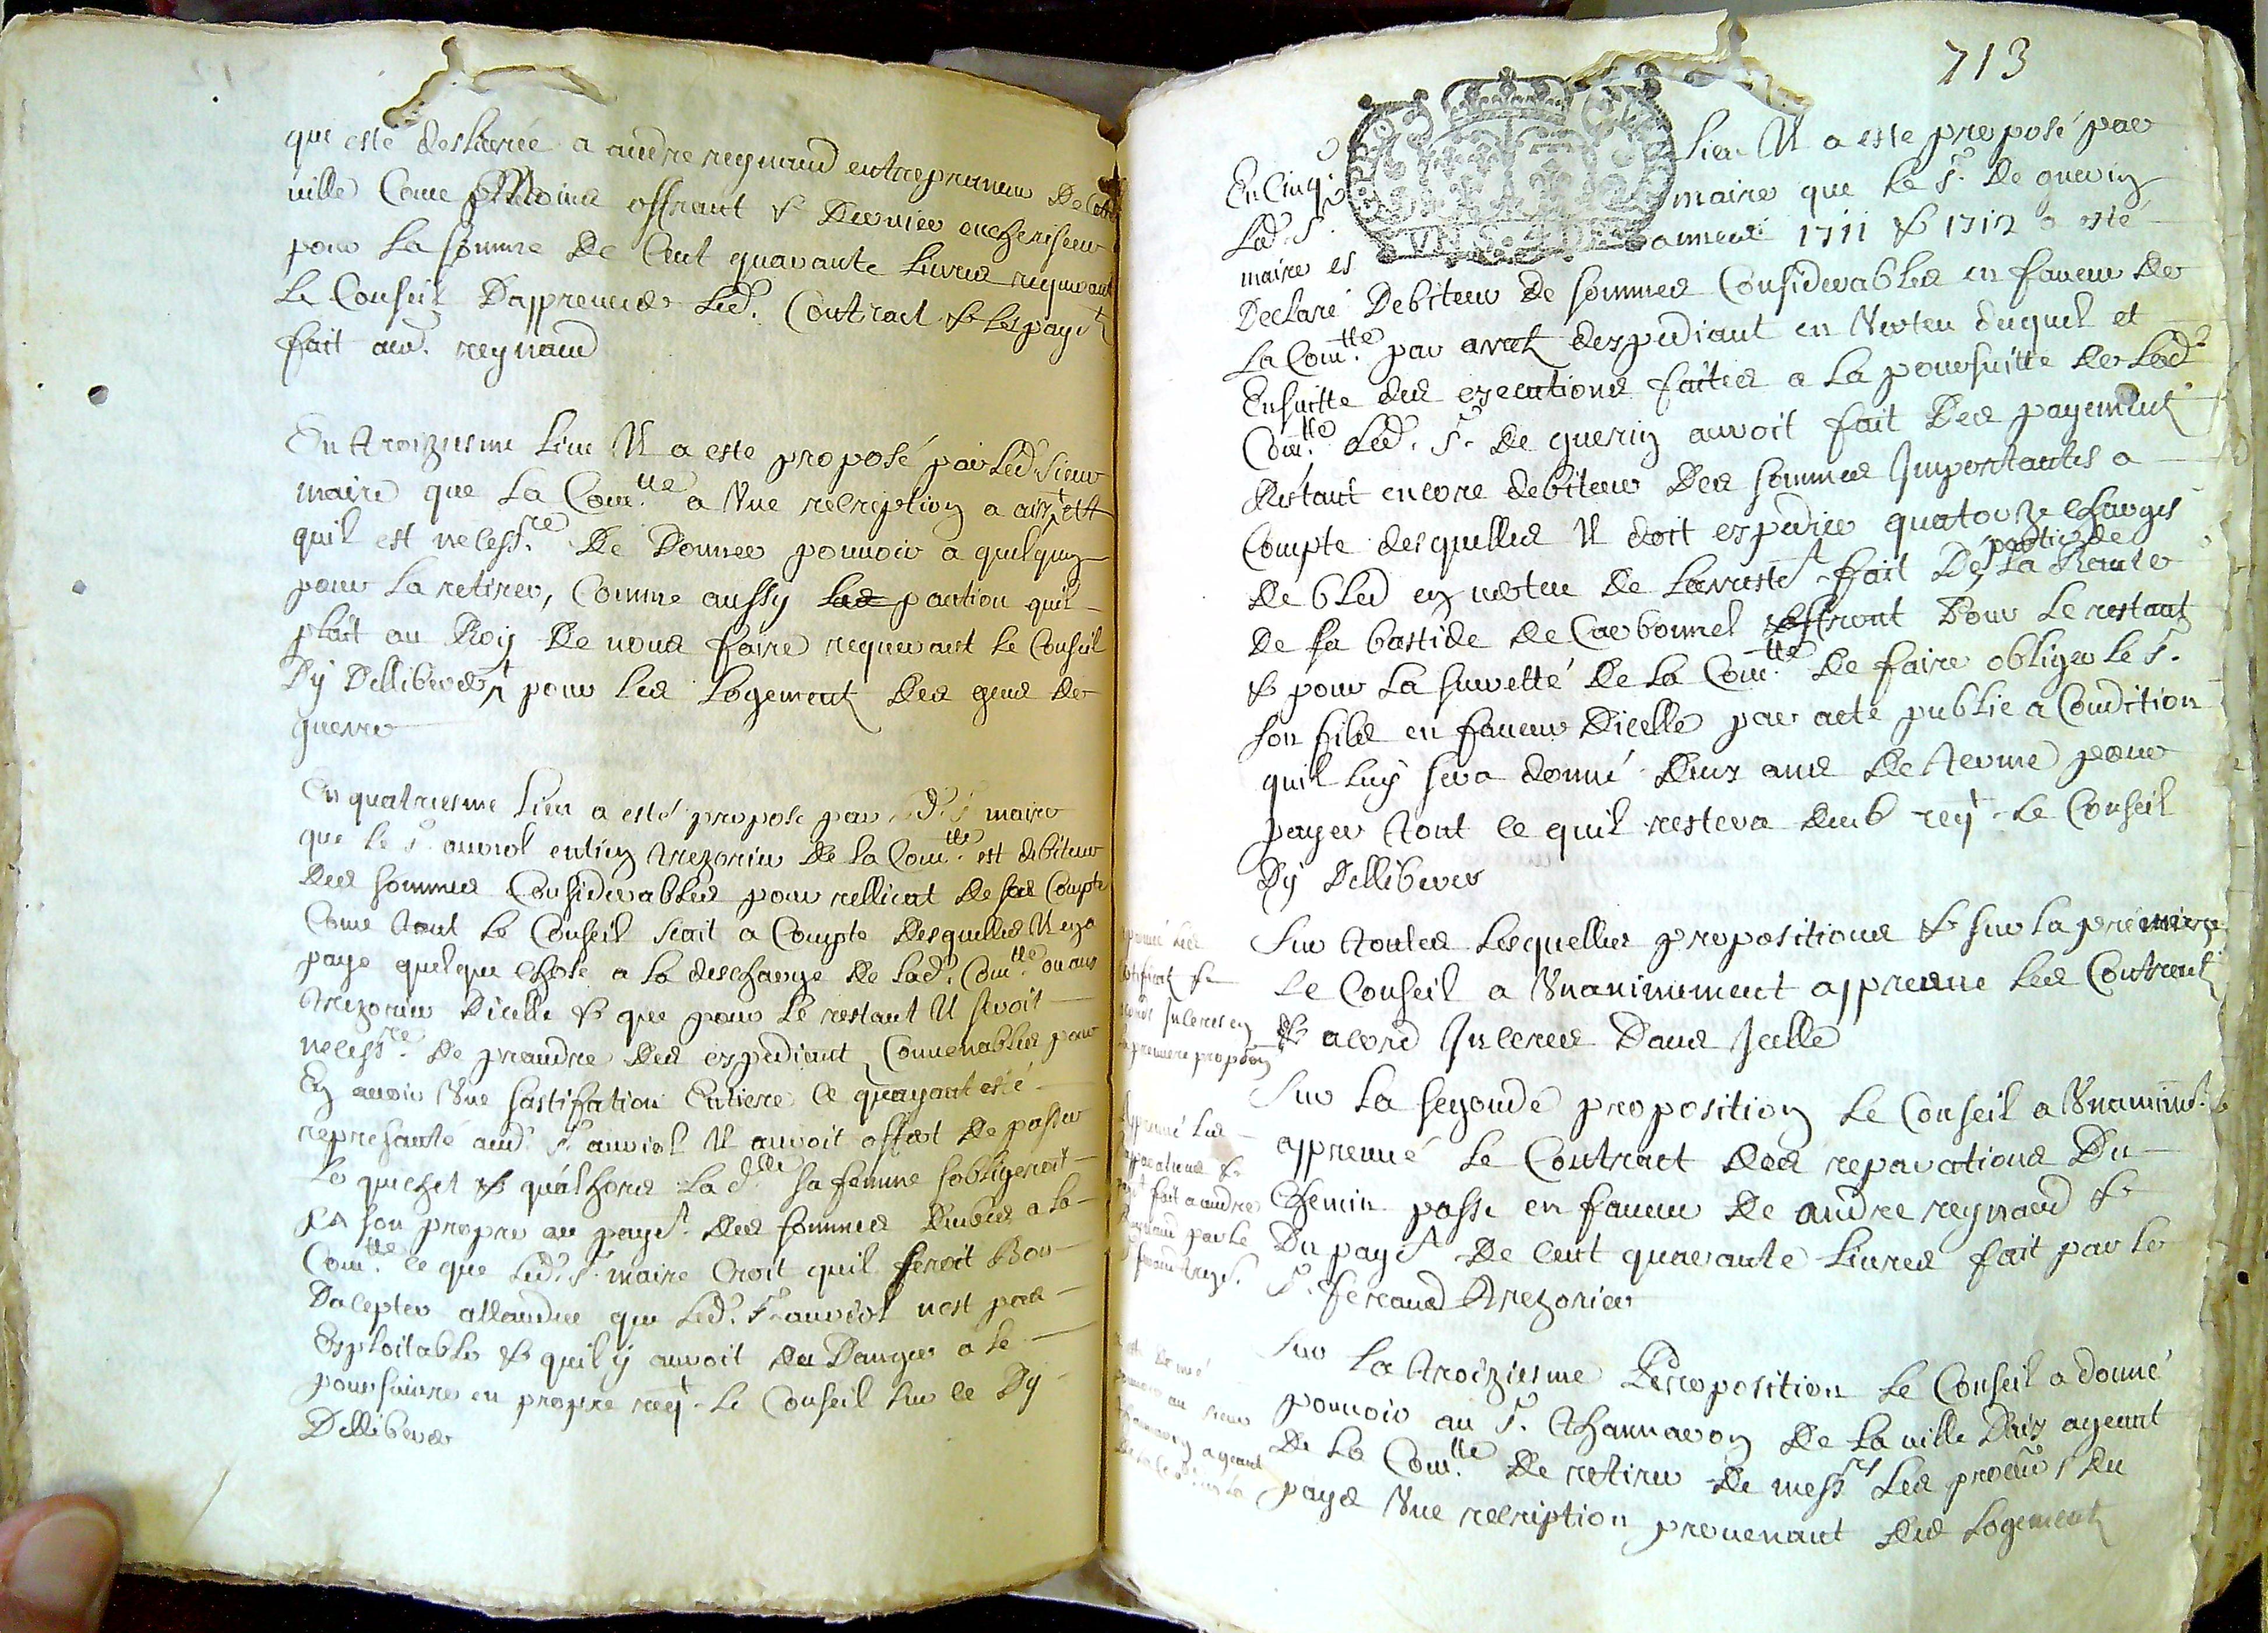 que esté deslivrée a andre reynaud entrepreneur De Cette
ville Come Moins offrant & Dernier encherisseur
pour La somme De Cent quarante Livres requerant
Le Conseil Dapprouver Led. Contract & Le payet
fait aud. reynaud
En troiziesme Lieu Il a este proposé par Led. Sieur
maire que La Comtte a Une rescription a aix ett
quil est necessre De Donner pouvoir a quelquun
pour La retirer, Comme aussy portion quil
plait au Roy De nous faire requerant le Conseil
Dy Delliberer pour Les Logement Des gens de
guerre
En quatriesme Lieu a esté proposé par Led. Sr maire
que le Sr. auriol entien trezorier De la Comtte est debiteur
Des sommes Considerables pour rellicat De ses Compte
Come tout Le Conseil scait a Compte Desquelles Il en a
paye quelque chose a la descharge De lad. Comtte ou aux
trezorier Dicelle & que pour Le restant Il seroit
necessre De prandre Des expediant Convenables pour
En avoir Une sastifation Entiere Ce quayant esté
represanté aud. Sr auriol Il auroit offert De passer
Le & quálhors La dlle sa femme sobligeroit
son propre au payet Des sommes Deubes a la
Comtte Ce que Led. Sr. maire Croit quil seroit Bon
Dacepter attandeu que Led. Sr auriol nest pas
Exploitable & quil y auroit Du Danger a le
poursuivre en propre reqt Le Conseil sur ce Dy
Delliberer
713
En Cinq Lieu Il a este proposé par
Led. Sr. maire que le Sr. De guerin
maire es annees 1711 & 1712 a esté
UN S. 4 DE
Declaré Debiteur De sommes Considerables en faveur De
La Comtte par arrest despediant en Vertu duquel et
Ensuitte des executions faites a la poursuitte De Lad.
Comtte Led. Sr. De guerin auroit fait Des payement
Restant encore debiteur Des sommes Importantes a
Compte desquelles Il doit expedier quatorze charges
De bled en vertu De Larrestet fait De partie de La Rante
De sa bastide De Carbonnel offrent Pour Le restant
& pour La surretté De la Comtte De faire obliger le Sr.
son fils en faveur Dicelle par acte public a Condition
quil luy sera donné Deux ans De terme pour
payer tout ce quil restera Deub reqt Le Conseil
Dy Delliberer
Sur toutes Lesquelles propositions & sur La premiere
Le Conseil a Unanimement appreuve Les Contract
& acord Inseres Dans Icelle
Sur La segonde proposition Le Conseil a Unanimt
appreuvé Le Contract Des reparations Du
Chemin passé en faveur De andre reynaud &
Du payet De Cent quarante Livres fait par Le
Sr. fereaud trezorier
Sur La troiziesme Proposition Le Conseil a donné
pouvoir au Sr. thannaron De La ville Daix ageant
De La Comtte De retirer De messrs Les procurs Du
pays Une rescription provenant Des Logement
Inseres en
la premiere propoon
Appreuvé Les
reparations &
payet fait a andre
Reynaud par Le
pouvoir au sieur
thannaron ageant